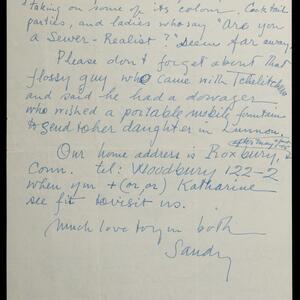 taking on some of its colour. Cocktail
parties, and ladies who say "Are you
a Sewer-Realist?" seem far away.
Please don't forget about that
flossy guy who came with Tchelitchew
and said he had a dowager
who wished a portable mobile fountain
to send to her daughter in Lunnon.
after May 1st
Our home address is Roxbury,
Conn. tel: Woodbury 122-2
when you + (or, or) Katharine
see fit to visit us.
Much love to you both
Sandy